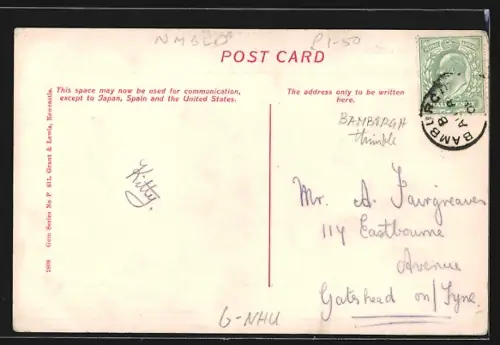 NMBLD
£1-50
POST CARD
This space may now be used for communication,
except to Japan, Spain and the United States.
The address only to be written
here.
BAMBURGH
thimble
BAMBURGH
Gem Series No P 811. Grant & Lewis, Newcastle.
1908
Kitty.
Mr. A. Fairgreaves
114 Eastbourne
Avenue
Gateshead on/Tyne.
G-NHU